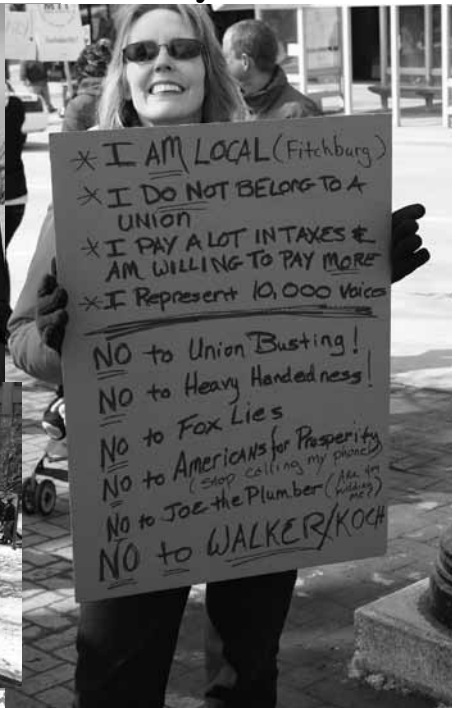 * I AM LOCAL (Fitchburg)
* I DO NOT BELONG TO A
UNION
* I PAY A LOT IN TAXES &
AM WILLING TO PAY MORE
* I Represent 10,000 Voices
NO to Union Busting!
NO to Heavy Handedness!
NO to Fox Lies
No to Americans for Prosperity
(Stop calling my phone!)
No to Joe the Plumber (Are you
kidding
me?)
NO to WALKER/KOCH